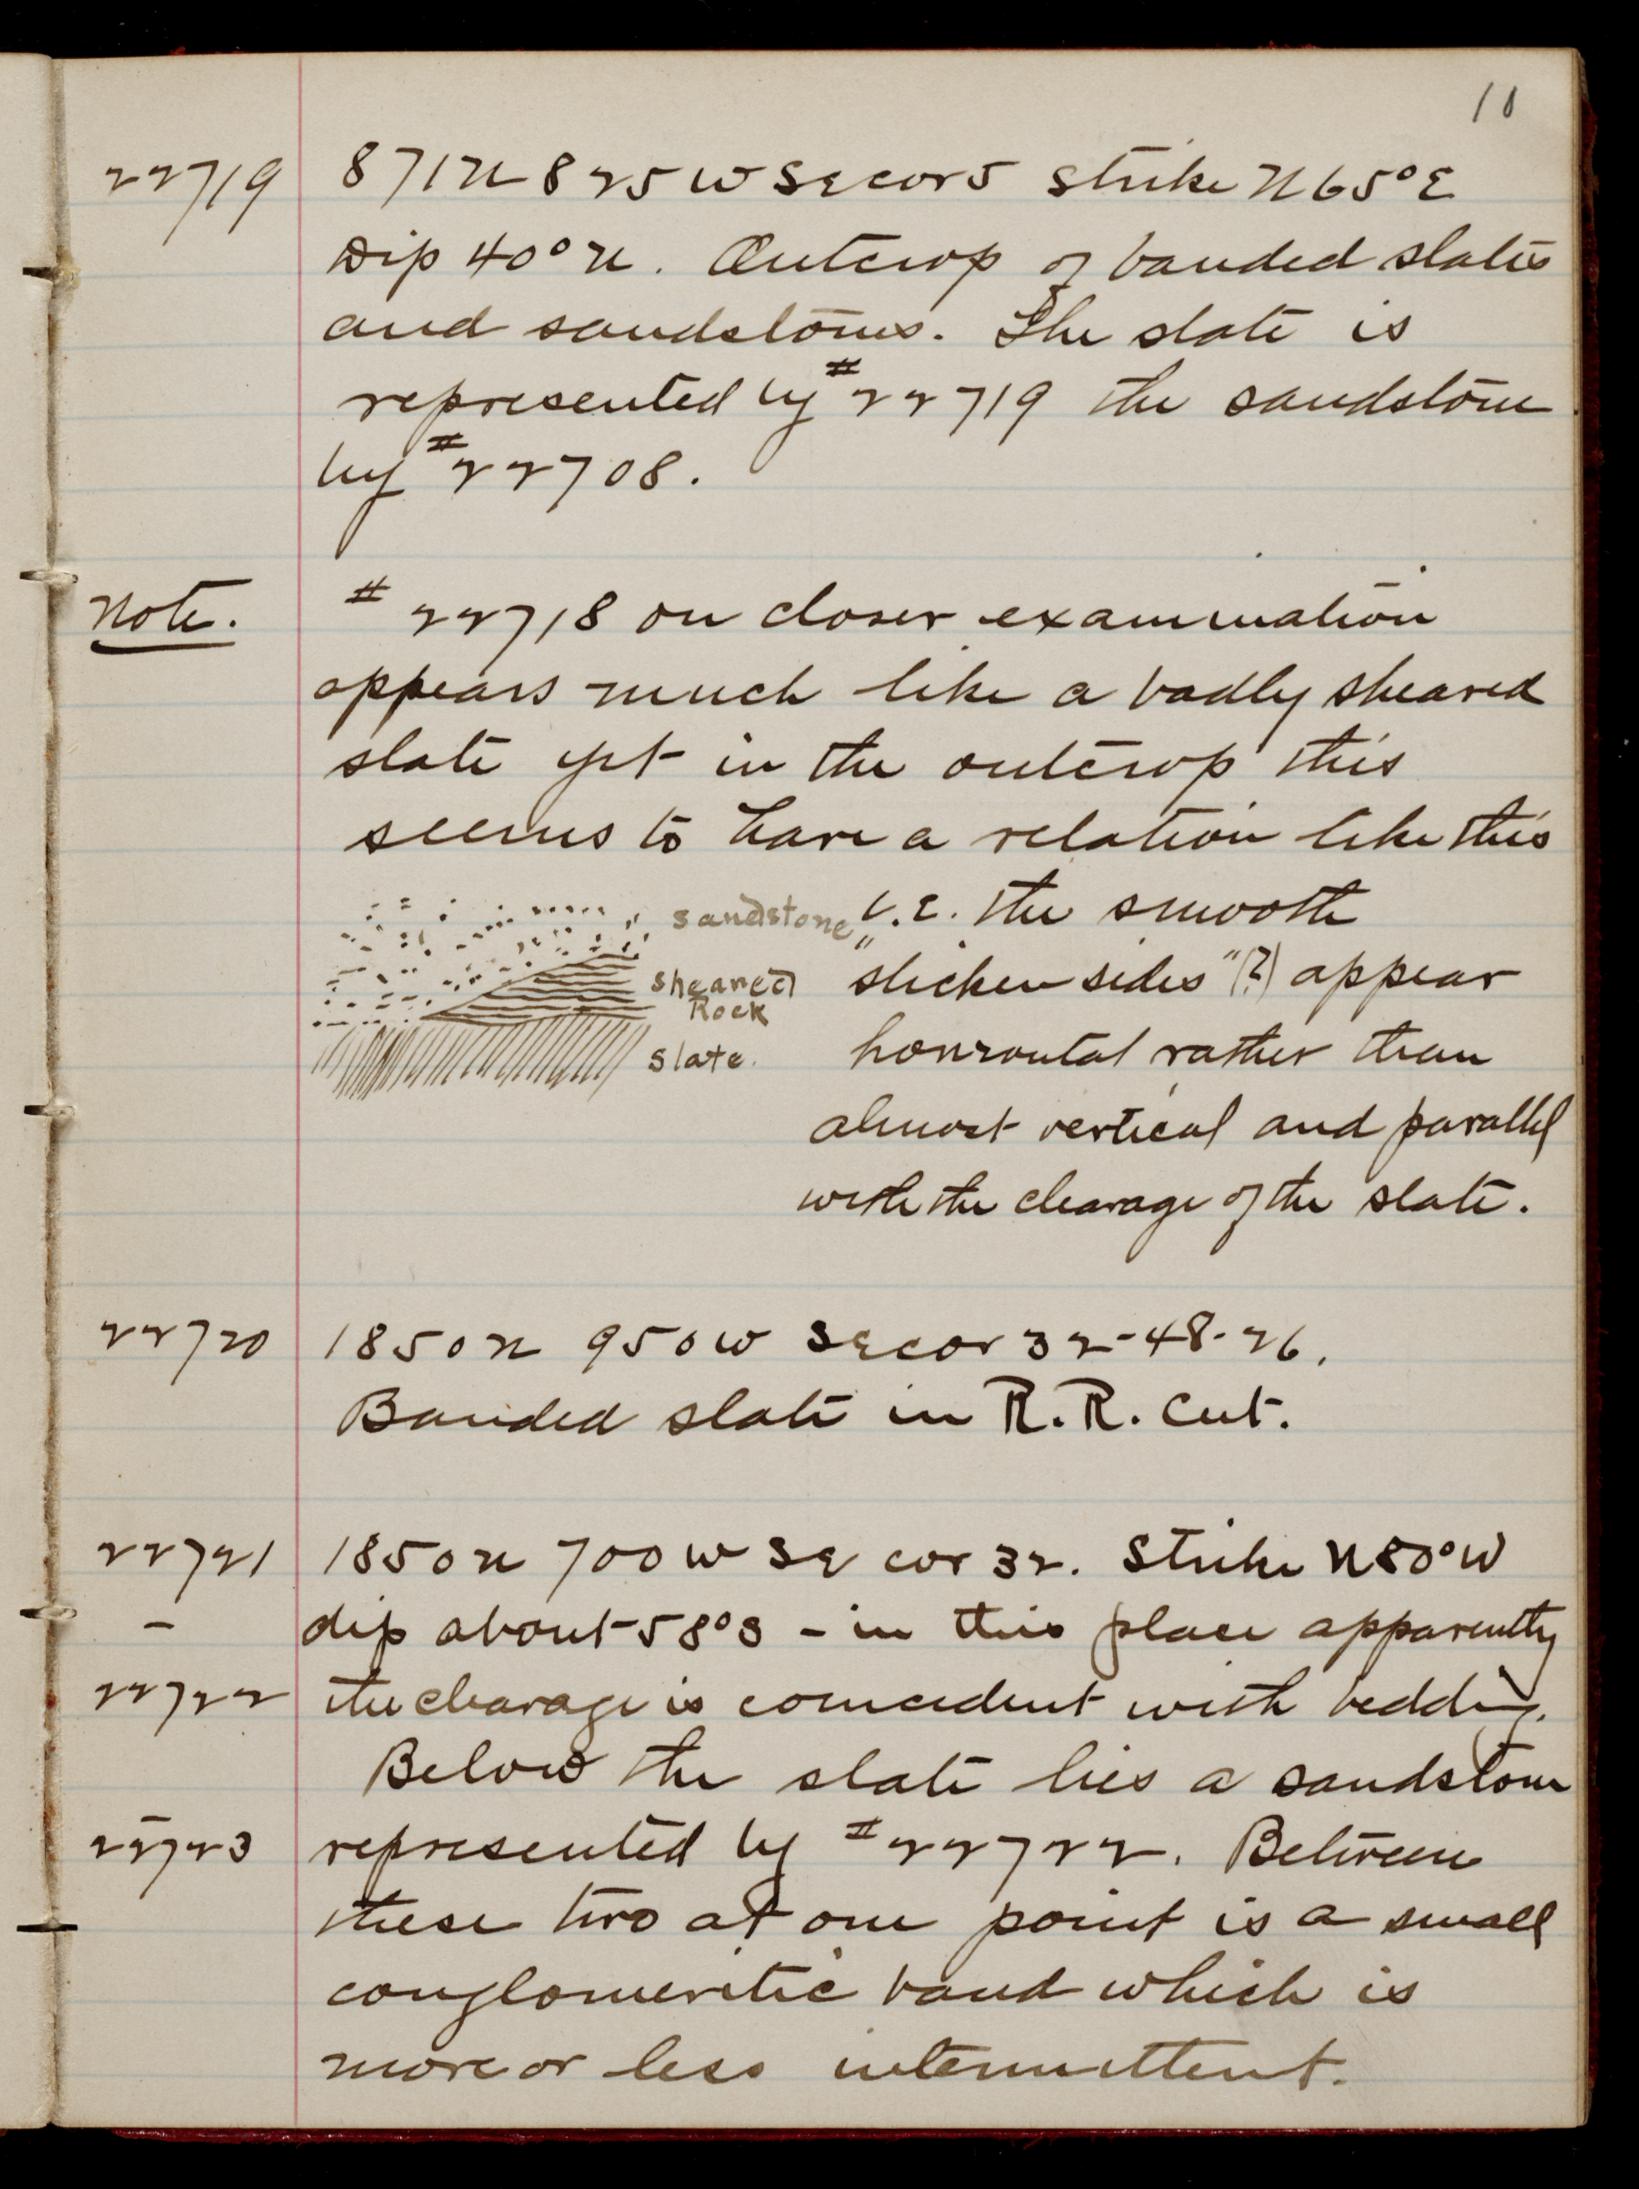 10
22719 871N 825W SE cor 5 Strike N65°E
Dip 40°N. Outcrop of banded slates
and sandstones. The slate is
represented by #22719 the sandstone
by #22708.
Note. #22718 on closer examination
appears much like a badly sheared
slate yet in the outcrop this
seems to have a relation like this
sandstone
sheared
Rock
slate.
i.e. the smooth
"slickensides"(?) appear
horizontal rather than
almost vertical and parallel
with the cleavage of the slate.
22720 1850N 950W SE cor 32-48-26.
Banded slate in R.R. Cut.
22721 1850N 700W SE cor 32. Strike N80°W
– dip about 58°S – in this place apparently
22722 the cleavage is coincident with bedding.
Below the slate lies a sandstone
–
22723 represented by #22722. Between
these two at one point is a small
conglomeritic band which is
more or less intermittent.